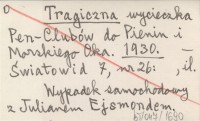 Tragiczna wycieczka
Pen-Clubów do Pienin i
Morskiego Oka. 1930. –
Światowid 7, nr 26: , il.
Wypadek samochodowy
z Juljanem Ejsmondem.